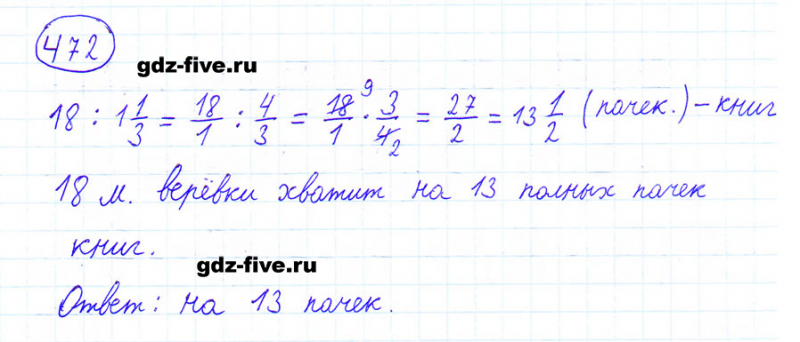 472
gdz-five.ru
18 : 1 1/3 = 18/1 : 4/3 = 18/1 9 · 3/4 2 = 27/2 = 13 1/2 (пачек.) – книг
18 м. верёвки хватит на 13 полных пачек
книг.
gdz-five.ru
Ответ: на 13 пачек.